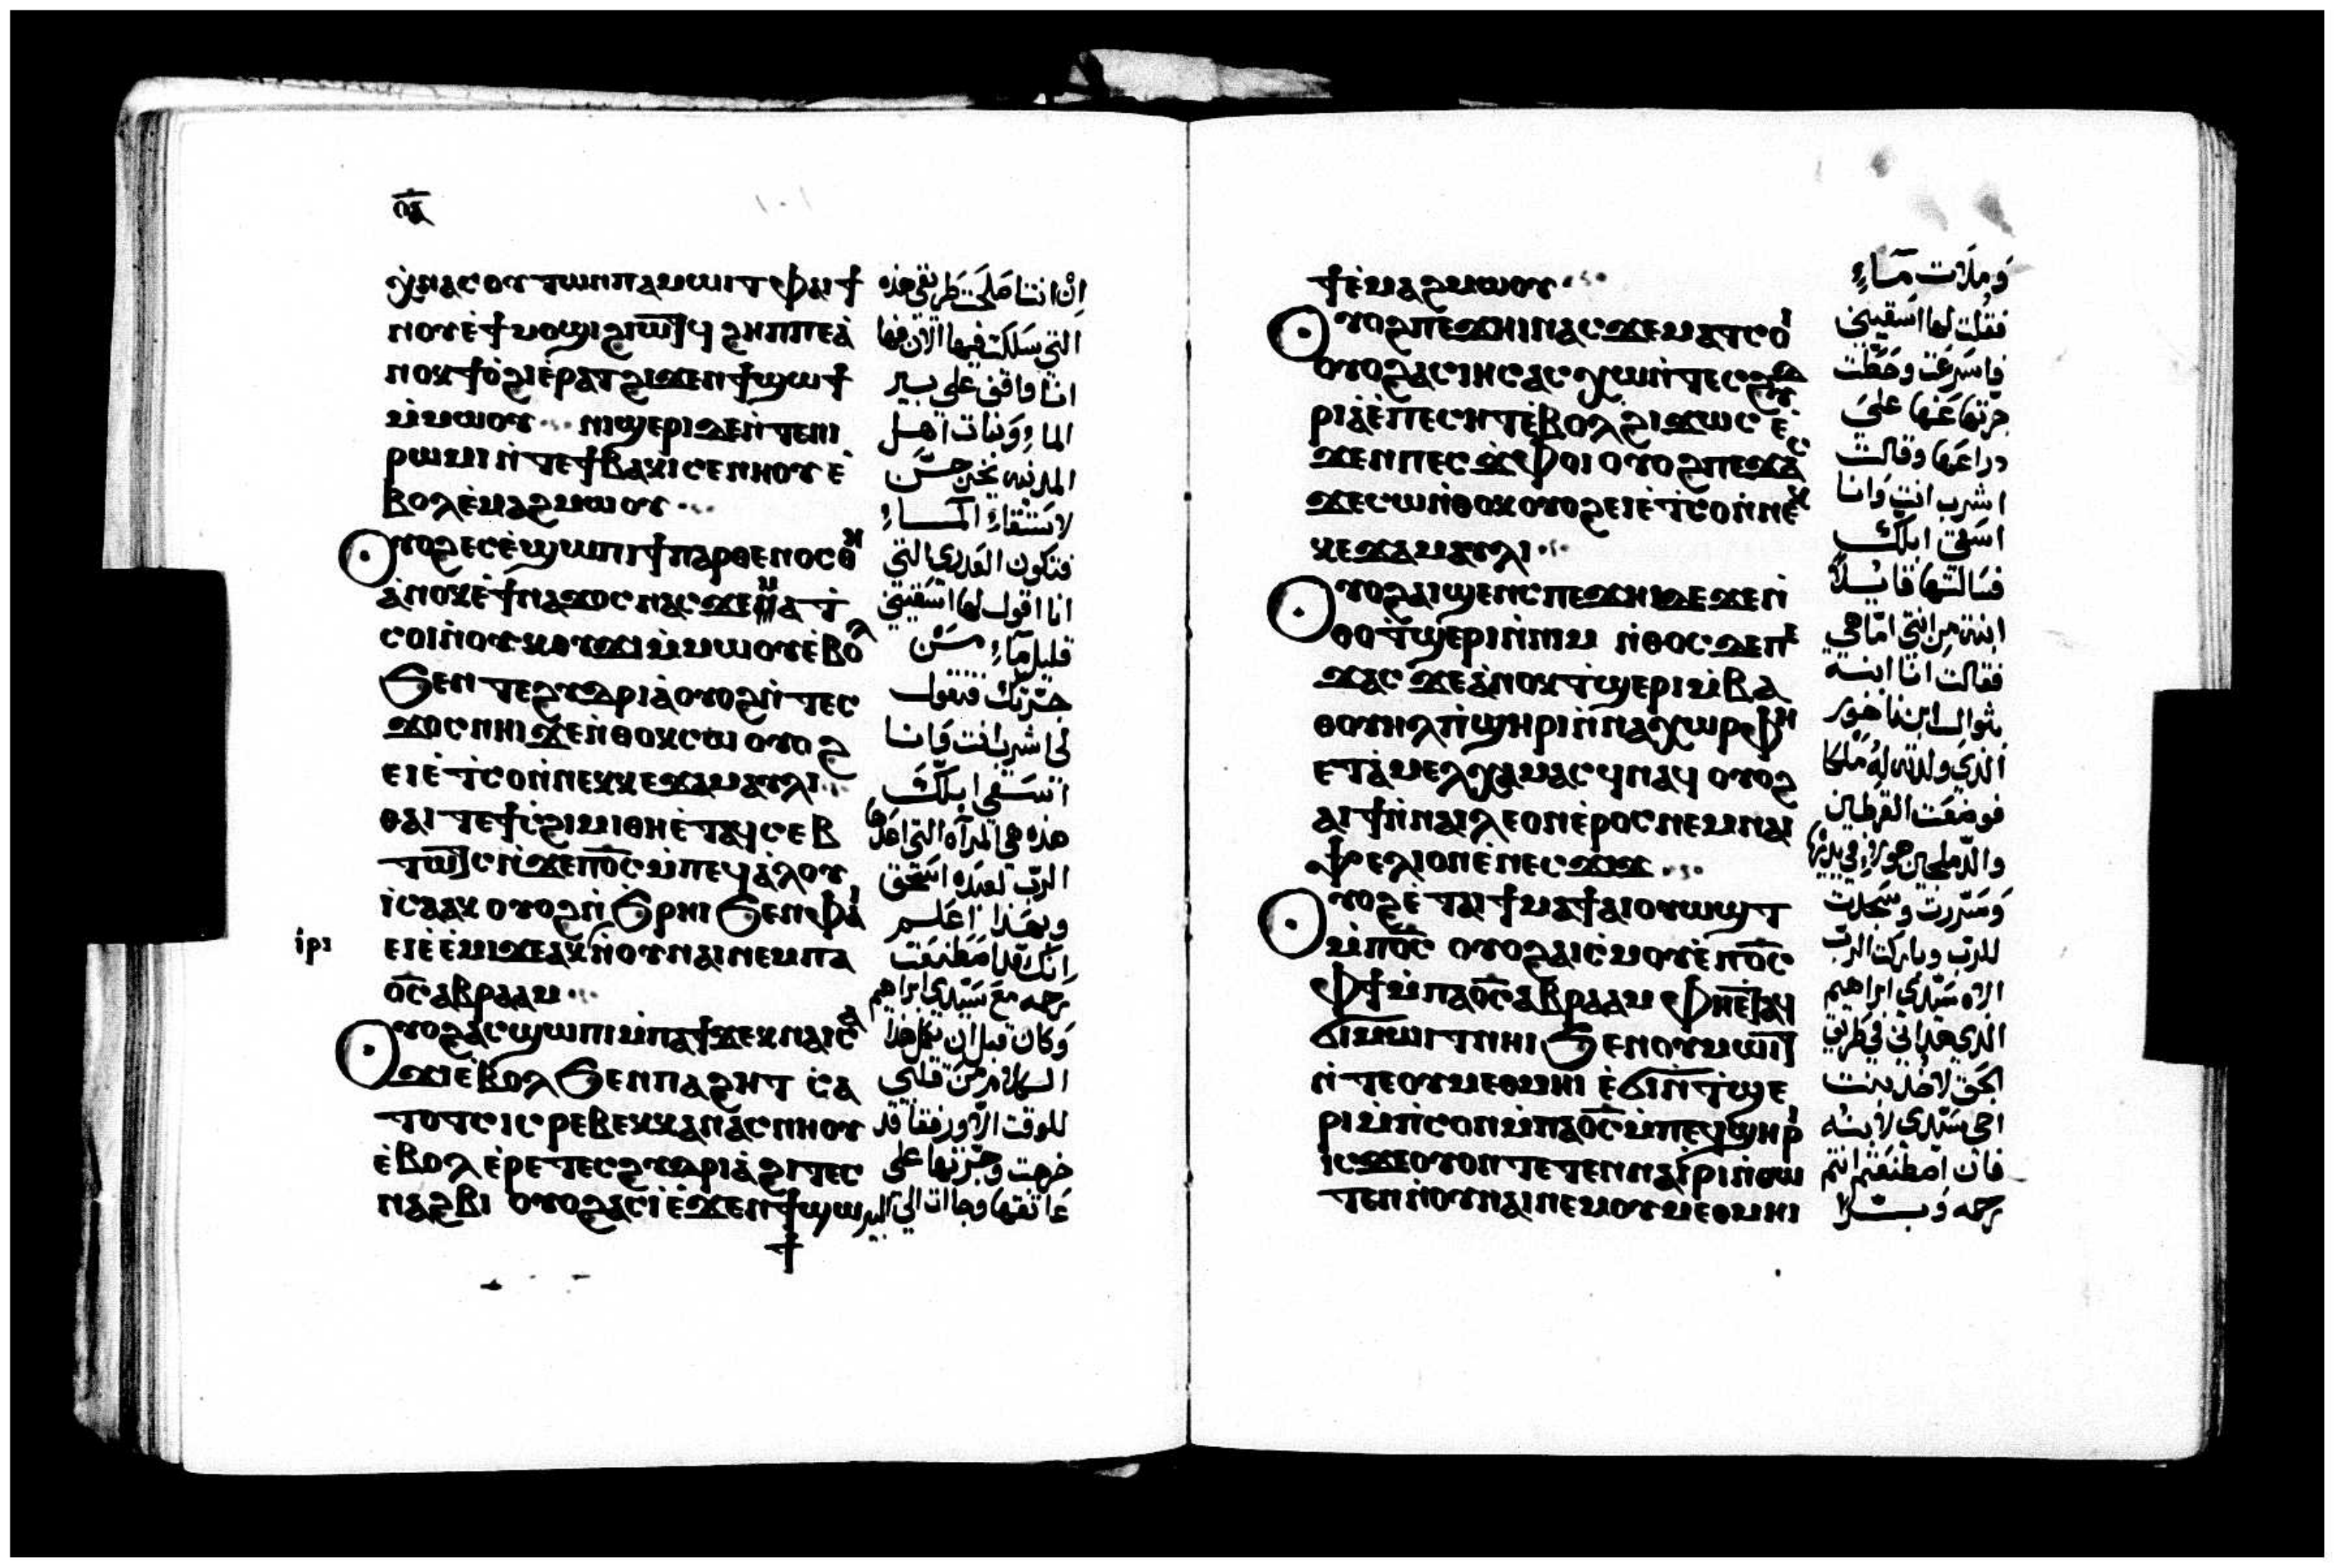 ⲟⲁ
ⲭⲛⲁⲥⲟⲩⲧⲱⲛⲡⲁⲙⲱⲓⲧⲫⲁⲓϯ
ⲛⲟⲩⲉϯⲙⲟϣⲓϩⲓⲱⲧϥ ϩⲏⲡⲡⲉⲁ
ⲛⲟⲕϯⲟϩⲓⲉⲣⲁⲧϩⲓϫⲉⲛϯϣⲱϯ
ⲙⲙⲱⲟⲩ ⲛⲓϣⲉⲣⲓⲇⲉⲛⲧⲉⲛⲓ
ⲣⲱⲙⲓⲛⲧⲉϯⲃⲁⲕⲓⲥⲉⲛⲏⲟⲩⲉ
ⲃⲟⲗⲉⲙⲁϩⲙⲱⲟⲩ
ⲟⲩⲟϩⲉⲥⲉϣⲱⲡⲓϯⲡⲁⲣⲑⲉⲛⲟⲥⲑⲏ
ⲁⲛⲟⲕⲉϯⲛⲁϫⲟⲥⲛⲁⲥϫⲉⲙⲁⲧ
ⲥⲟⲓⲛⲟⲩⲕⲟⲩϫⲓⲙⲙⲱⲟⲩⲉⲃⲟⲗ
ϧⲉⲛⲧⲉϩⲩⲇⲣⲓⲁⲟⲩⲟϩⲛⲧⲉⲥ
ϫⲟⲥⲛⲏⲓϫⲉⲛⲑⲟⲕⲥⲱ ⲟⲩⲟϩ
ⲉⲓⲉⲧⲥⲟⲛⲛⲉⲕⲕⲉϫⲁⲙⲁⲩⲗⲓ
ⲑⲁⲓⲧⲉϯⲥϩⲓⲙⲓⲑⲏⲉⲧⲁϥⲥⲉⲃ
ⲧⲱⲧⲥⲛϫⲉⲡⲟⲥⲙⲡⲉϥⲁⲗⲟⲩ
ⲓⲥⲁⲁⲕ ⲟⲩⲟϩⲛϧⲣⲏⲓϧⲉⲛⲫⲁⲓ
ⲉⲓⲉⲉⲙⲓϫⲉⲁⲕⲛⲟⲩⲛⲁⲓⲛⲉⲙⲡⲁ
ⲓⲣⲓ
ⲟⲥⲁⲃⲣⲁⲁⲙ
ⲟⲩⲟϩⲁⲥϣⲱⲡⲓⲙⲡⲁϯϫⲉⲕⲛⲁⲓⲥⲁ
ϫⲓⲉⲃⲟⲗϧⲉⲛⲡⲁϩⲏⲧ ⲥⲁ
ⲧⲟⲧⲥⲓⲥⲣⲉⲃⲉⲕⲕⲁⲛⲁⲥⲛⲏⲟⲩ
ⲉⲃⲟⲗⲉⲣⲉⲧⲉⲥϩⲩⲇⲣⲓⲁϩⲓⲧⲉⲥ
ⲛⲁϩⲃⲓ ⲟⲩⲟϩⲁⲥⲓⲉϫⲉⲛϯϣⲱ
ϯ
التي سلكت فيها الان فها
انا واقف على بير
الما وبنات اهل
المدينه يخرجن
لاستقاء المــاء
فتكون العذرى التي
انا اقول لها اسقيني
قليل ماء من
جرتك فتقول
لي اشرب انت وانا
استسقي ابلك
هذه هي المرآه التي اعدها
الرب لعبده اسحق
وبهذا اعلم
انك قد اصطنعت
رحمه مع سيدي ابراهيم
وكان قبل ان يكمل هذا
الكلام من قلبي
للوقت الا ورفقا قد
خرجت وجرتها على
عاتقها وجاات الى البير
ϯⲉⲙⲁϩⲙⲱⲟⲩ
ⲟⲩⲟϩⲡⲉϫⲏⲓⲛⲁⲥϫⲉⲙⲁⲧⲥⲟⲓ
ⲟⲩⲟϩⲁⲥⲓⲏⲥⲁⲥⲭⲱⲛⲧⲉⲥϩⲩⲇ
ⲣⲓⲁⲉⲡⲉⲥⲏⲧⲉⲃⲟⲗϩⲓϫⲱⲥ ⲉ
ϫⲉⲛⲡⲉⲥϫⲫⲟⲓ ⲟⲩⲟϩⲡⲉϫⲁⲥ
ϫⲉⲥⲱⲛⲑⲟⲕⲟⲩⲟϩⲉⲓⲉⲧⲥⲟⲛⲛⲉⲕ
ⲕⲉϫⲁⲙⲁⲩⲗⲓ
ⲟⲩⲟϩⲁⲓϣⲉⲛⲥⲡⲉϫⲏⲓϫⲉϫⲉⲛ
ⲑⲟⲧϣⲉⲣⲓⲛⲛⲓⲙ ⲛⲑⲟⲥⲇⲉⲡⲉ
ϫⲁⲥ ϫⲉⲁⲛⲟⲕⲧϣⲉⲣⲓⲙⲃⲁ
ⲑⲟⲩⲏⲗⲡϣⲏⲣⲓⲛⲛⲁⲭⲱⲣⲫⲏ
ⲉⲧⲁⲙⲉⲗⲭⲁⲙⲁⲥϥⲛⲁϥ ⲟⲩⲟϩ
ⲁⲓϯⲛⲛⲁⲓⲗⲉⲟⲛⲉⲣⲟⲥⲛⲉⲙⲛⲁⲓ
ⲯⲉⲗⲓⲟⲛⲉⲛⲉⲥϫⲓϫ
ⲟⲩⲟϩⲉⲧⲁⲓϯⲙⲁϯⲁⲓⲟⲩⲱϣⲧ
ⲙⲡⲟⲥ ⲟⲩⲟϩⲁⲓⲥⲙⲟⲩⲉⲡⲟⲥ
ⲫϯⲙⲡⲁⲟⲥⲁⲃⲣⲁⲁⲙ ⲫⲏⲉⲧⲁϥ
ϭⲓⲙⲱⲓⲧⲛⲏⲓ ϧⲉⲛⲟⲩⲙⲱⲓⲧ
ⲛⲧⲉⲟⲩⲙⲉⲑⲙⲏⲓ ⲉϭⲓⲛⲧϣⲉ
ⲣⲓⲙⲡⲥⲟⲛⲙⲡⲁⲟⲥⲙⲡⲉϥϣⲏⲣⲓ
ⲓⲥϫⲉⲟⲩⲟⲛⲧⲉⲧⲉⲛⲛⲁⲓⲣⲓⲛⲑⲱ
ⲧⲉⲛⲛⲟⲩⲛⲁⲓⲛⲉⲙⲟⲩⲙⲉⲑⲙⲏⲓ
وملات مــاء
فقلت لها اسقيني
فاسرعت وحطت
جرتها عنها على
دراعها وقالت
اشرب انت وانا
اسقي ابلك
فسالتها قايلا
ابنة من انتي اما هي
فقالت انا ابنــة
بثوال ابن ناخور
الذي ولدته له ملكا
فوضعت القرطين
وسررت وسجدت
للرب وباركت الرب
الاه سيدي ابراهيم
الذي هداني في طريق
الحق لاخذ بنت
اخي سيدي لابنه
فان اصطنعتم انتم